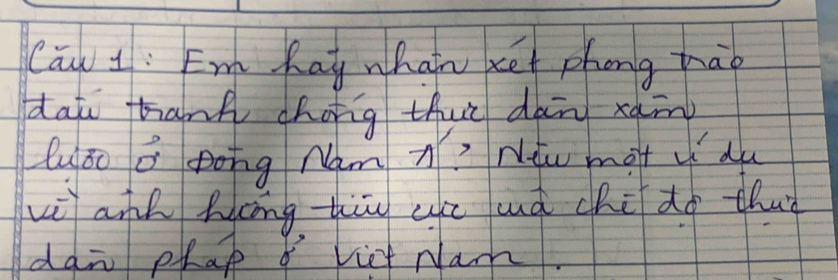 Câu 1: Em hãy nhận xét phong trào
đấu tranh chống thực dân xâm
lược ở Đông Nam Á? Nêu một ví dụ
về ảnh hưởng tiêu cực của chế độ thực
dân pháp ở Việt Nam.